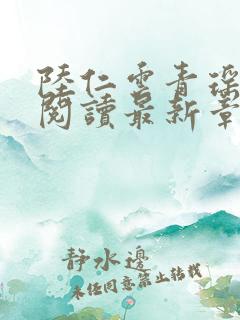 陸仁雲青瑤
閱讀最新章
靜水邊
未經同意禁止轉載